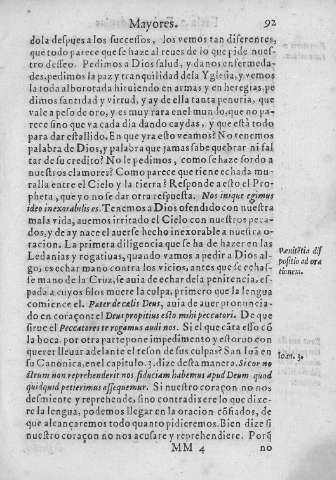 Mayores. 92
dola despues a los successos, los vemos tan diferentes,
que todo parece que se haze al reues de lo que pide nues-
tro desseo. Pedimos a Dios salud, y danos enfermeda-
des, pedimos la paz y tranquilidad dela Yglesia, y vemos
la toda alborotada hiruiendo en armas y en heregias, pe
dimos santidad y virtud, y ay de ella tanta penuria, que
vale a peso de oro, y es muy rara en el mundo, que no pa-
rece sino que va cada dia dando caydas, y que està todo
para dar estallido. En que yra esto veamos? No tenemos
palabra de Dios, y palabra que jamas sabe quebrar ni fal
tar de su credito? No le pedimos, como se haze sordo a
nuestros clamores? Como parece que tiene echada mu-
ralla entre el Cielo y la tierra? Responde a esto el Pro-
pheta, que yo no se dar otra respuesta. Nos inique egimus
ideo inexorabilis es. Tenemos a Dios ofendido con nuestra
mala vida, auemos irritado el Cielo con nuestros peca-
dos, y de ay nace el auerse hecho inexorable a nuestra o-
racion. La primera diligencia que se ha de hazer en las
Ledanias y rogatiuas, quando vamos a pedir a Dios al-
go, es echar mano contra los vicios, antes que se echas-
se mano de la Cruz, se auia de echar dela penitencia, es-
pada a cuyos filos muere la culpa, primero que la lengua
comience el. Pater de cælis Deus, auia de auer pronuncia-
do en coraçon el Deus propitius esto mihi peccatori. De que
sirue el Peccatores te rogamus audi nos. Si el que cãta esso cõ
la boca, por otra parte pone impedimento y estoruo con
querer lleuar adelante el teson de sus culpas? San Iuã en
su Canónica, en el capitulo 3. dize desta manera. Si cor no
strum non reprehenderit nos fiduciam habemus apud Deum quod
quidquid petierimus assequemur. Si nuestro coraçon no nos
desmiente y reprehende, sino contradixere lo que dixe-
re la lengua, podemos llegar en la oracion cõfiados, de
que alcançaremos todo quanto pidieremos. Bien dize si
nuestro coraçon no nos acusare y reprehendiere. Porq̃
MM 4 no
Pœnitẽtia dis
positio ad ora
tionem.
Ioan. 3.